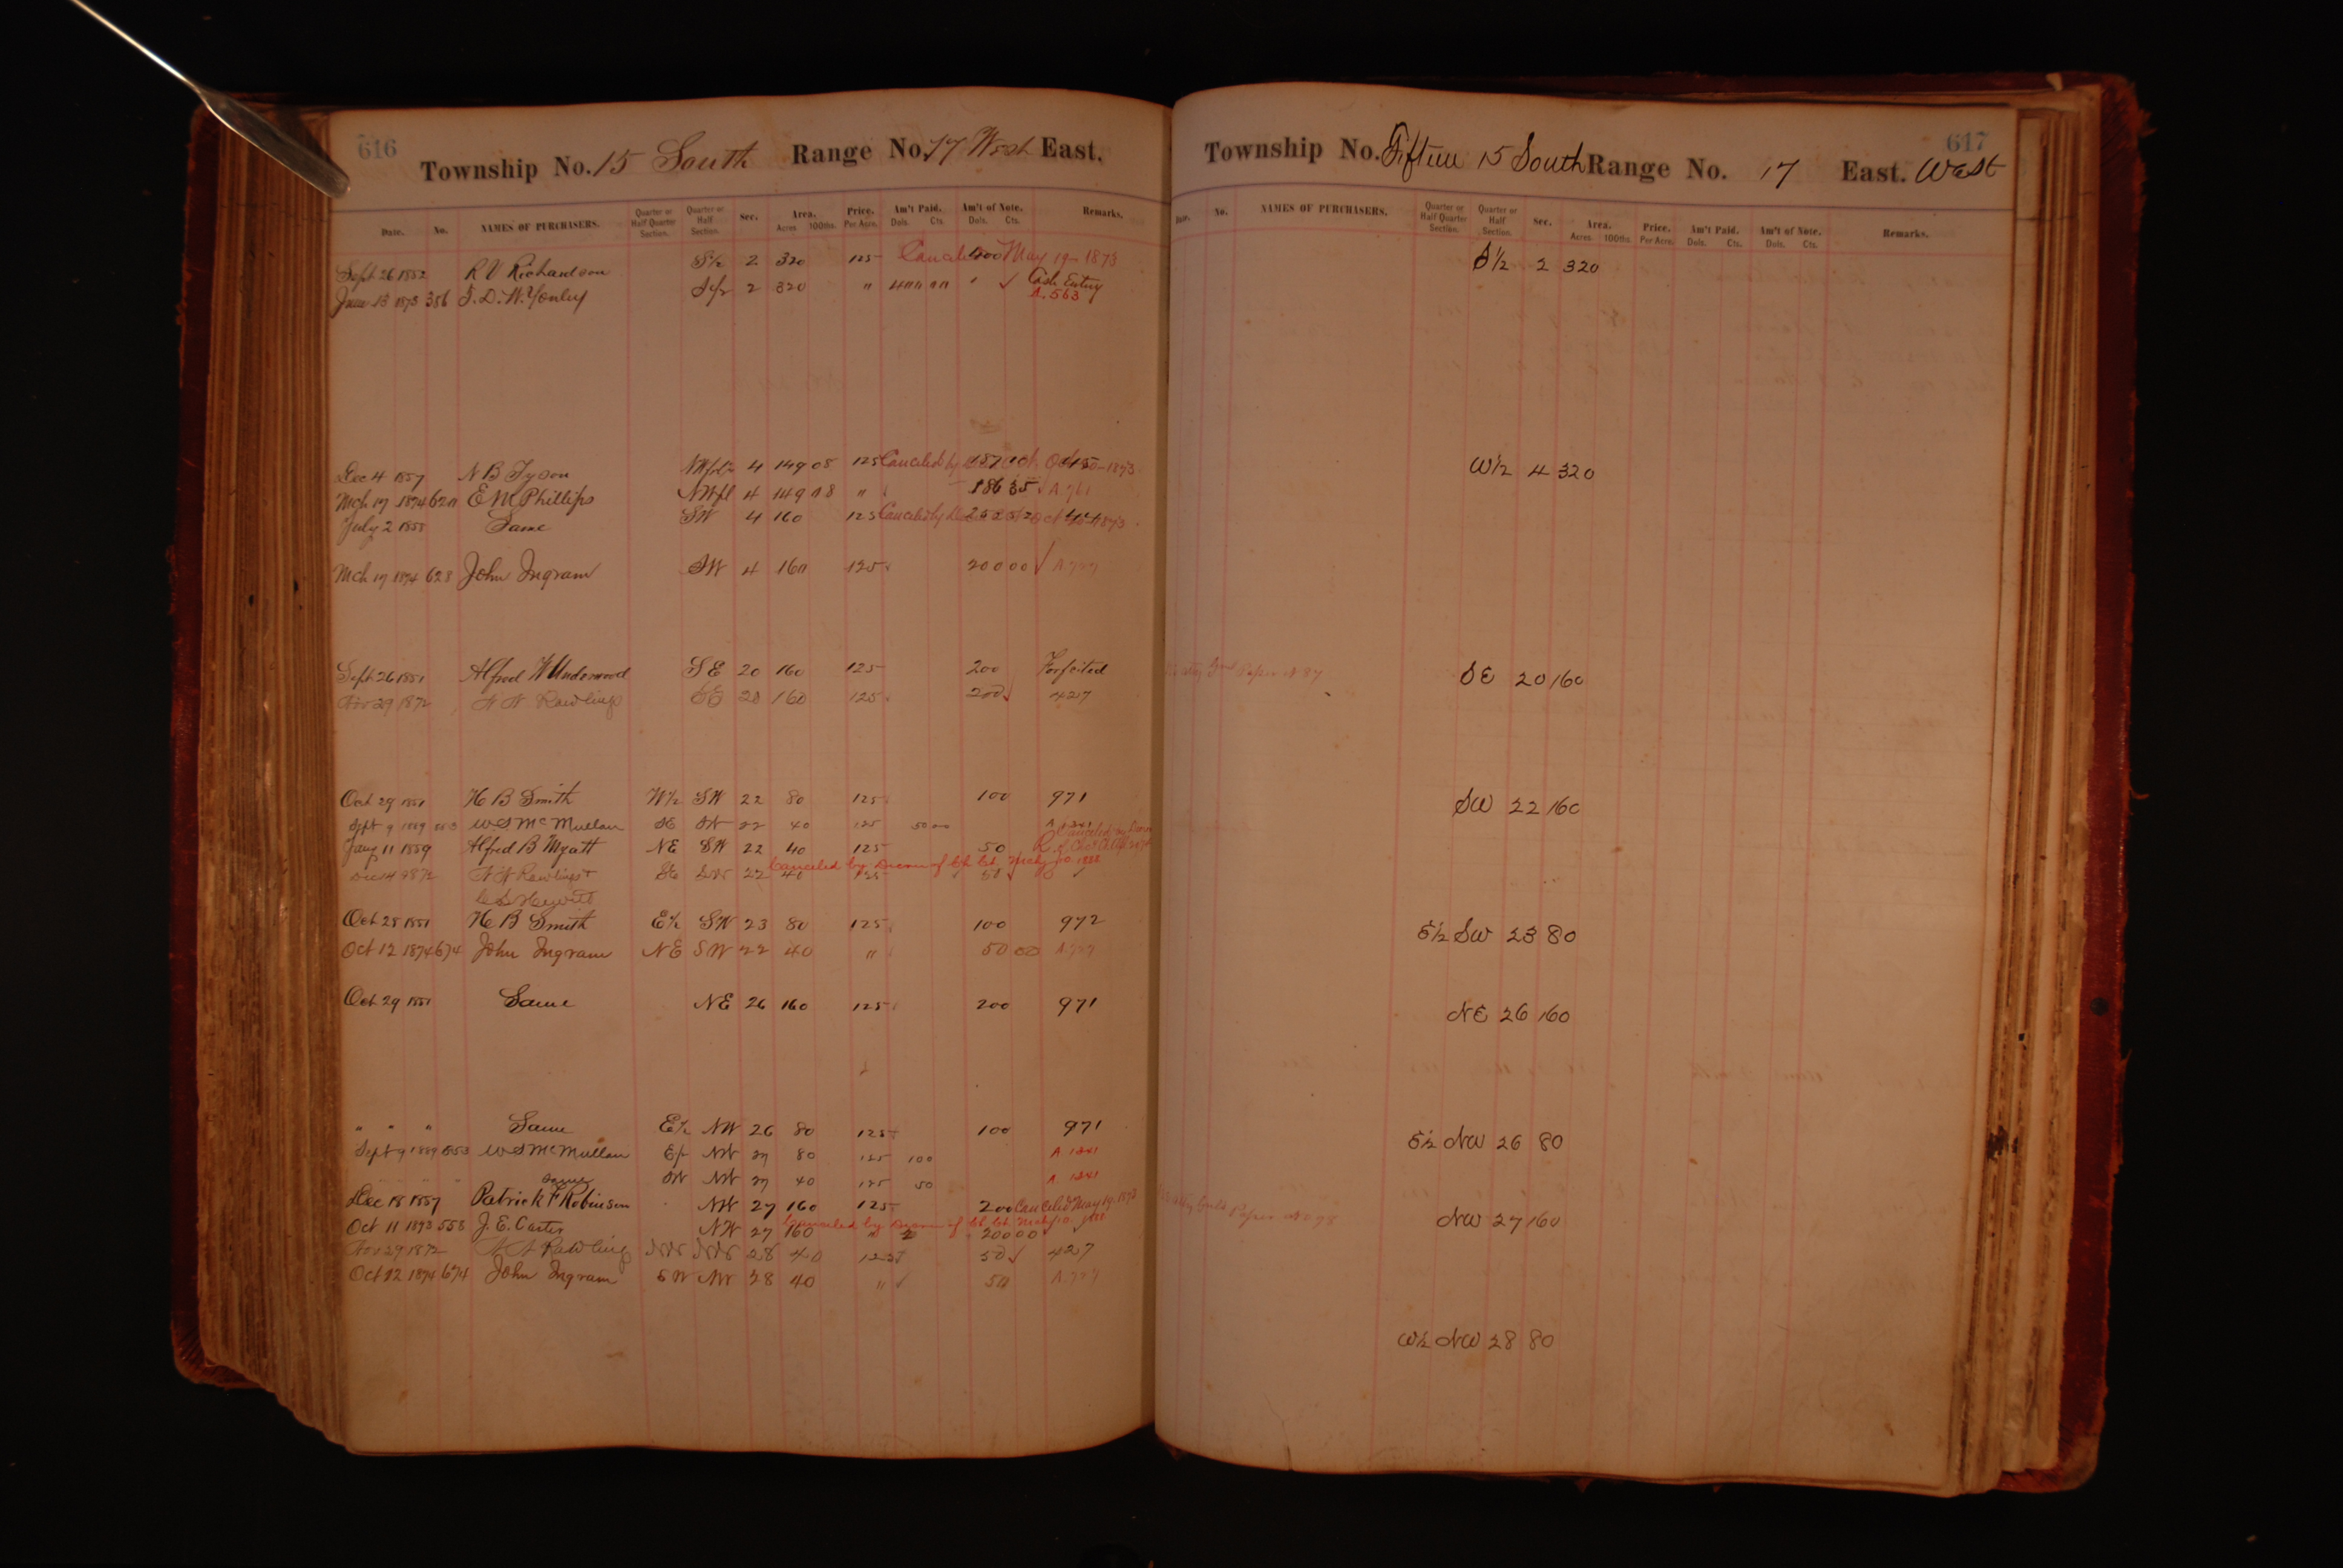 616
Township No. 15 South Range No. 17 West East.
Date. No. NAMES OF PURCHASERS. Quarter or Half Quarter Section. Quarter or Half Section. Sec. Area. Acres 100ths. Price. Per Acre. Am't Paid. Dols. Cts. Am't of Note. Dols. Cts. Remarks.
Sept 26 1852 R V Richardson S½ 2 320 125 Canceled 500 May 19 1873
June 13 1873 386 J. D. W. Yonley S½ 2 320 " 400 00 " ✓ Cash Entry
A. 563
Dec 4 1857 N B Tyson 4 149 08 125 Canceled by Oct 1873
Mch 17 1874 627 E M Phillips NW fl 4 149 08 " 186 35 ✓ A 761
July 2 1855 Same SW 4 160 125 Canceled by Oct 1873
Mch 17 1874 628 John Ingram SW 4 160 125 200 00 ✓ A 727
Sept 26 1851 Alfred W Underwood S E 20 160 125 200 Forfeited
Nov 29 1872 Rawlings SE 20 160 125 200 ✓ 427
Oct 29 1851 H B Smith W½ SW 22 80 125 100 971
Sept 9 1889 853 W S McMullan SE SW 22 40 125 50 00 A 1341
Jany 11 1859 Alfred B Myatt NE SW 22 40 125 50
Canceled by Decree of Ch Ct. Mch 10 1888
1872 Rawlings + SE SW 22 40 125 50 ✓
C B Hewitt
Oct 25 1851 H B Smith E½ SW 23 80 125 100 972
Oct 12 1874 674 John Ingram NE SW 22 40 " 50 00 A 727
Oct 29 1851 Same NE 26 160 125 200 971
" " " Same E½ NW 26 80 125 100 971
Sept 9 1889 853 W S McMullan E½ NW 27 80 125 100 A 1341
Same SW NW 27 40 125 50 A 1341
Dec 18 1857 Patrick F Robinson NW 27 160 125 200 Canceled May 19. 1873
Canceled by Decree of Ch Ct. Mch 10 1888
Oct 11 1873 558 J. E. Carter NW 27 160 " 200 00 ✓
Nov 29 1872 Rawlings NW NW 28 40 125 50 ✓ 427
Oct 12 1874 674 John Ingram SW NW 28 40 " ✓ 50 A 727
617
Township No. Fifteen 15 South Range No. 17 East. West
Date. No. NAMES OF PURCHASERS. Quarter or Half Quarter Section. Quarter or Half Section. Sec. Area. Acres 100ths. Price. Per Acre. Am't Paid. Dols. Cts. Am't of Note. Dols. Cts. Remarks.
S½ 2 320
W½ 4 320
SE 20 160
SW 22 160
E½ SW 23 80
NE 26 160
E½ NW 26 80
NW 27 160
W½ NW 28 80